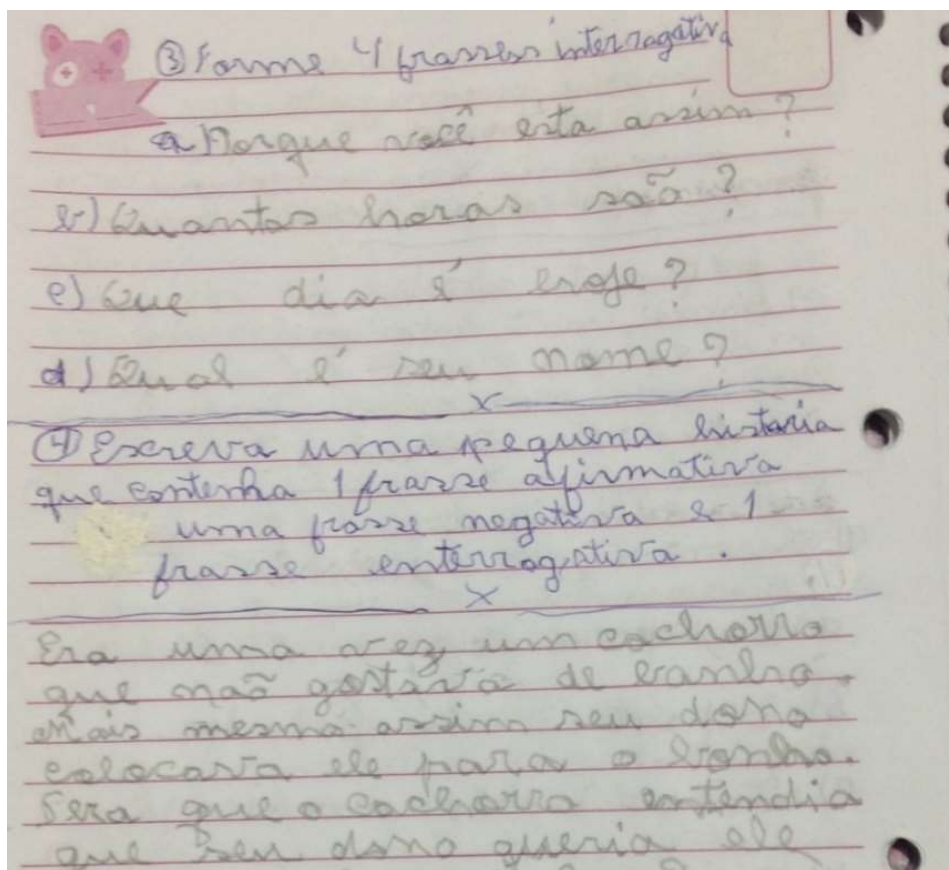 ③ Forme 4 frasses interrogativa
a Porque você esta assim?
b) Quantas horas são?
c) Que dia é hoje?
d) Qual é seu nome?
x
④ Escreva uma pequena historia
que contenha 1 frasse afirmativa
uma frasse negativa e 1
frasse enterrogativa.
x
Era uma vez um cachorro
que não gostava de banho.
Mais mesmo assim seu dono
colocava ele para o banho.
Sera que o cachorro entendia
que seu dono queria ele